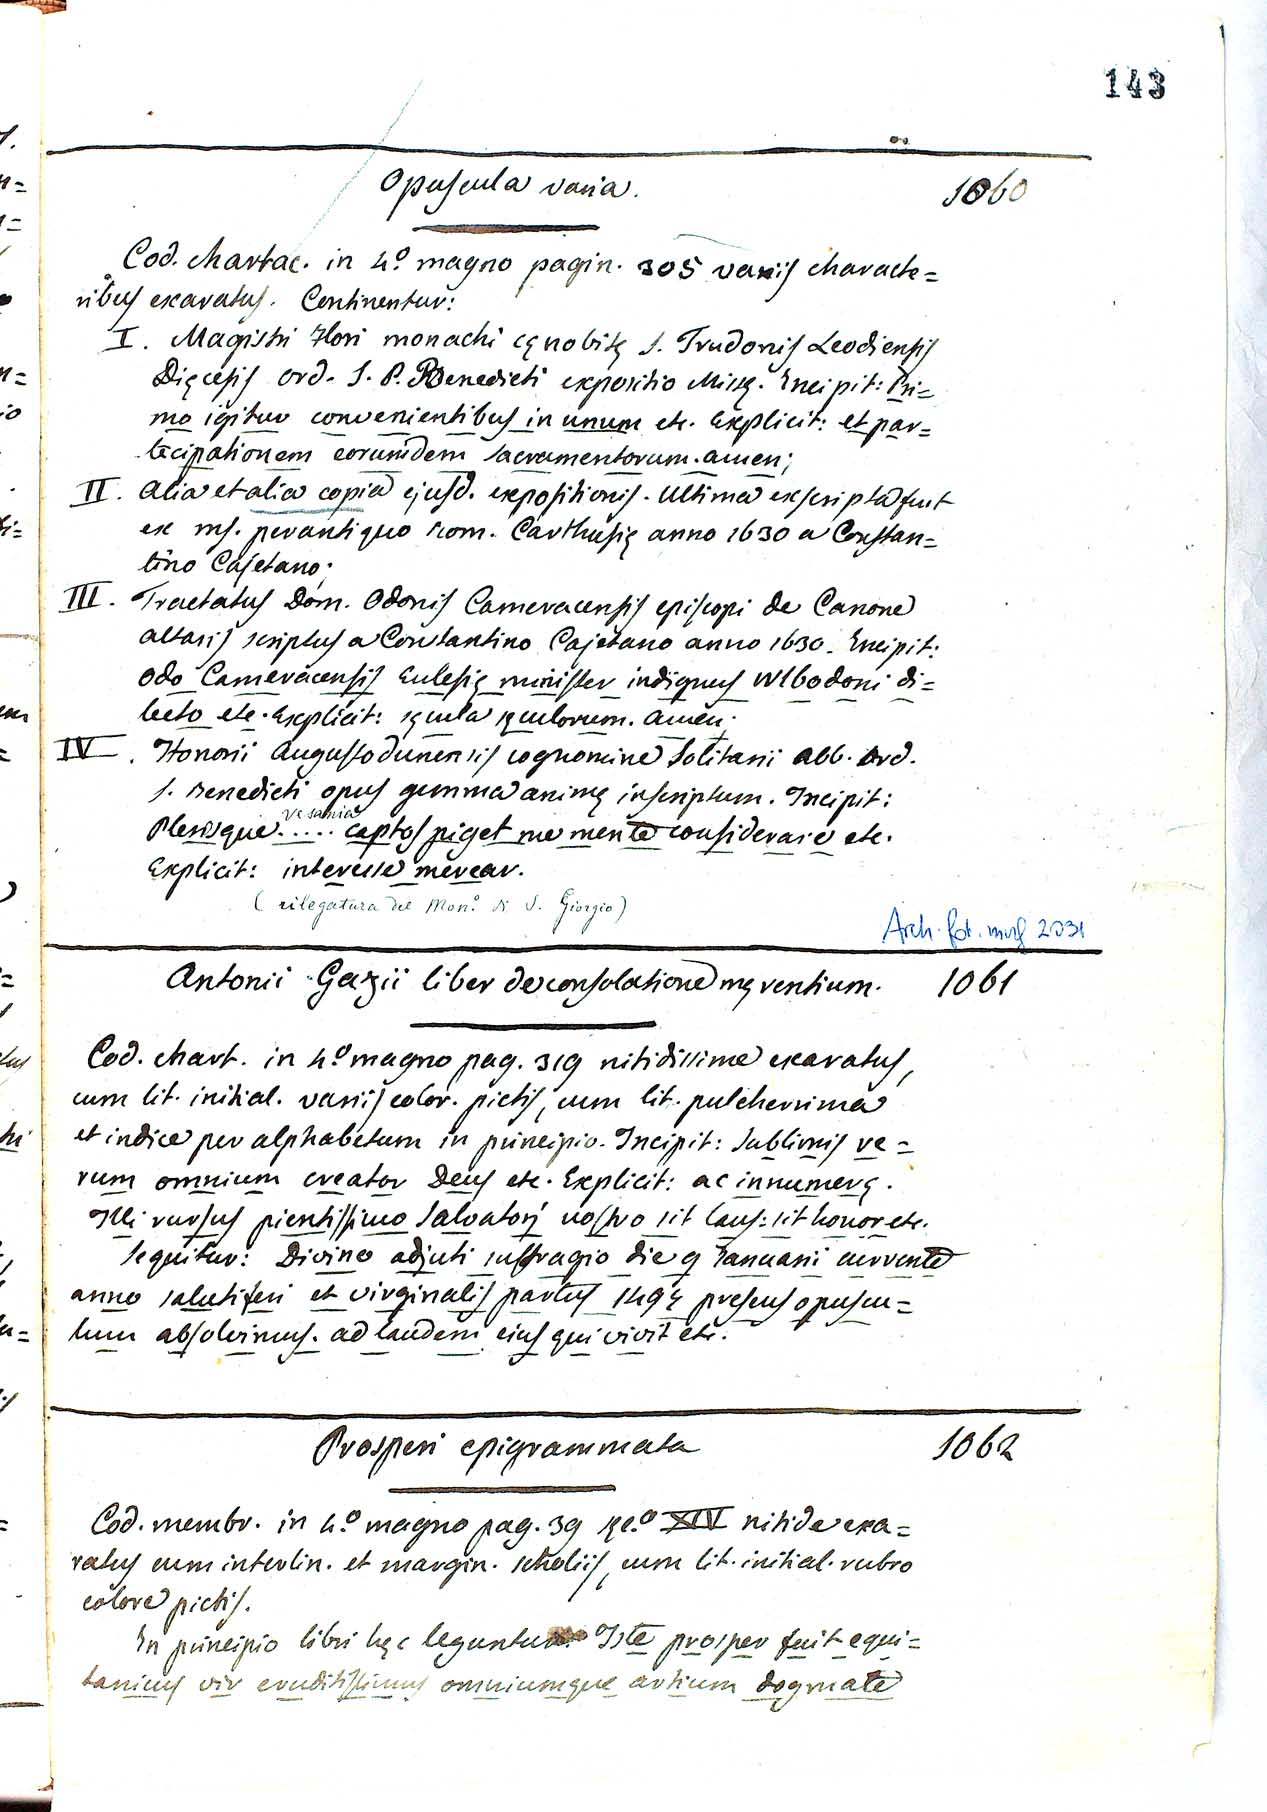 143
Opuscula varia. 1060
Cod. chartac. in 4.º magno pagin. 305 variis characte=
ribus exaratus. Continentur:
I. Magistri Flori monachi cęnobitę S. Trudonis Leodiensis
Dięcesis Ord. S. P. Benedicti expositio Missę. Incipit: Pri=
mo igitur convenientibus in unum etc. Explicit: et par=
tecipationem eorumdem sacramentorum. amen;
II. Alia et alia copia ejusd. expositionis. Ultima exscripta fuit
ex ms. perantiquo Rom. Carthusię anno 1630 a Constan=
tino Cajetano;
III. Tractatus Dom. Odonis Cameracensis episcopi de Canone
altaris scriptus a Constantino Cajetano anno 1630. Incipit:
Odo Cameracensis Eclesię minister indignus Wlbodoni di=
lecto etc. Explicit: sęcula sęculorum. amen;
IV. Honorii Augustodunensis cognomine Solitarii Abb. Ord.
S. Benedicti opus gemma animę inscriptum. Incipit:
vesania
Plerosque ..... captos piget me mente considerare etc.
Explicit: interesse merear.
(rilegatura del Mon.º di S. Giorgio)
Arch. fot. neg 2031
Antonii Gazii liber de consolatione męrentium. 1061
Cod. chart. in 4.º magno pag. 319 nitidissime exaratus,
cum lit. initial. variis color. pictis, cum lit. pulcherrima
et indice per alphabetum in principio. Incipit: Sublimis re=
rum omnium creator Deus etc. Explicit: ac innumerę.
Illi rursus pientissimo Salvatori nostro sit laus: sit honor etc.
Sequitur: Divino adjuti suffragio die 9 Januarii currente
anno salutiferi et virginalis partus 149 presens opuscu=
lum absolvimus. ad laudem ejus qui vivit etc.
Prosperi epigrammata 1062
Cod. membr. in 4.º magno pag. 39 sęc.º XIV nitide exa=
ratus cum interlin. et margin. scholiis, cum lit. initial. rubro
colore pictis.
In principio libri hęc leguntur: Iste prosper fuit equi=
tanicus vir eruditissimus omniumque artium dogmate